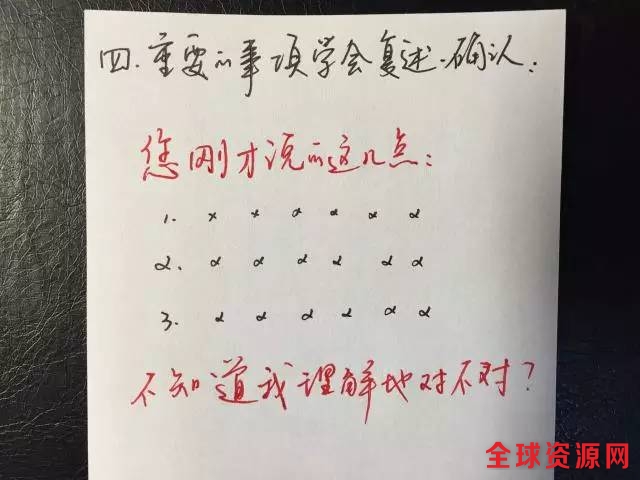 四.重要的事项学会复述.确认：
您刚才说的这几点：
1. x x x x x x
2. x x x x x x
3. x x x x x x
不知道我理解地对不对？
全球资源网